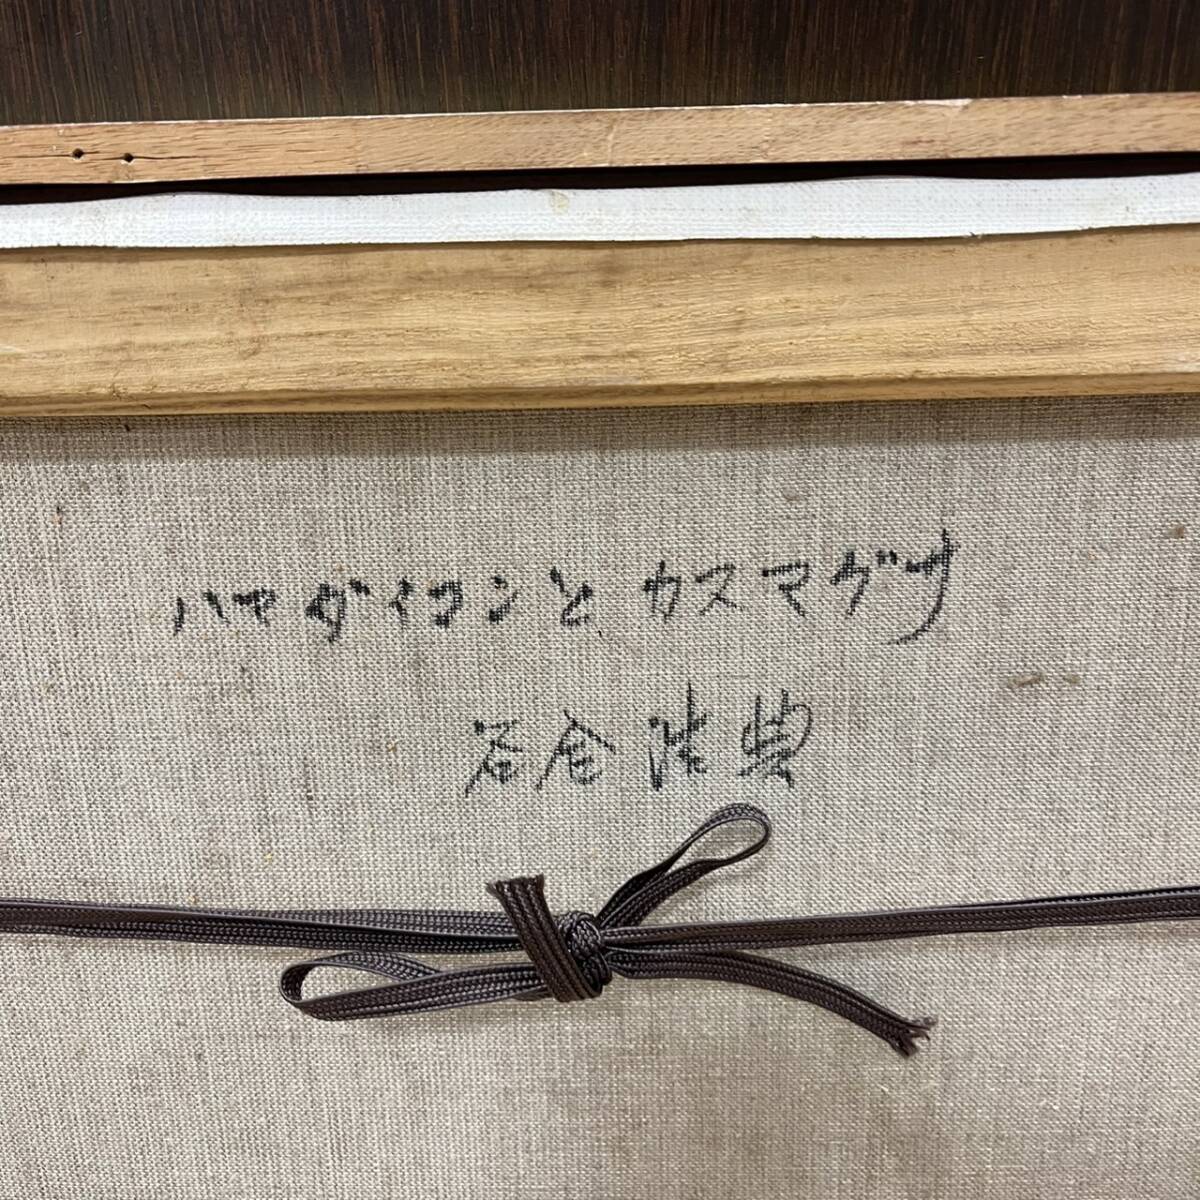 ハマダイコンとカスマグサ
谷倉浩典